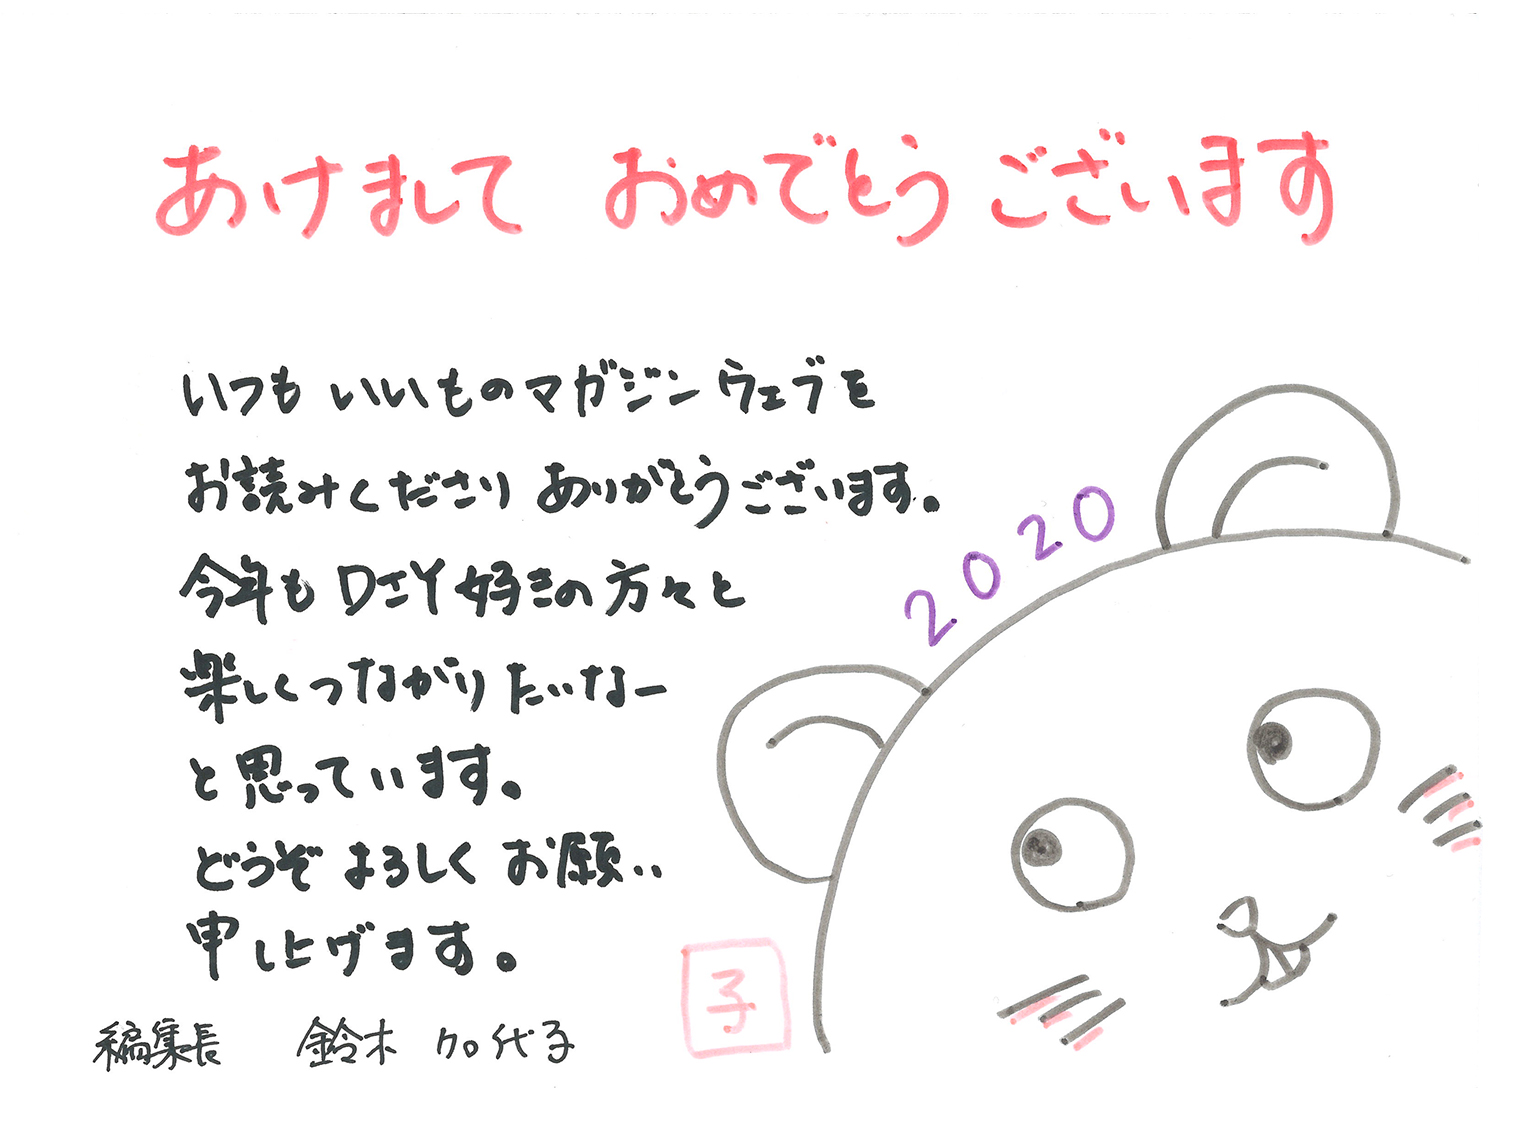 あけまして おめでとうございます
いつも いいものマガジンウェブを
お読みくださり ありがとうございます。
今年も DIY好きの方々と
楽しくつながりたいなー
と思っています。
どうぞ よろしくお願い
申し上げます。
編集長 鈴木 加代子
2020
子